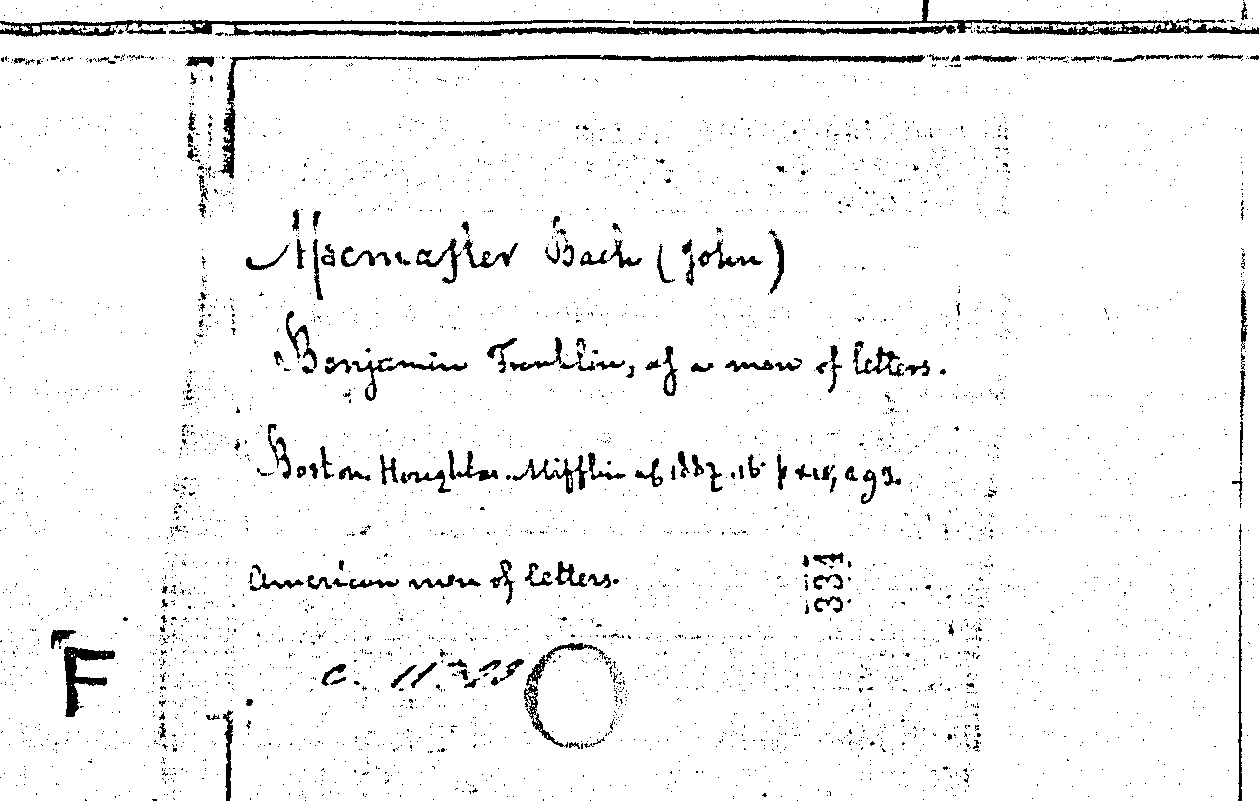 Macmaster Bach (John)
Benjamin Franklin, as a man of letters.
Boston. Houghton. Mifflin 1887. 16°
American men of letters.
331
F
C.